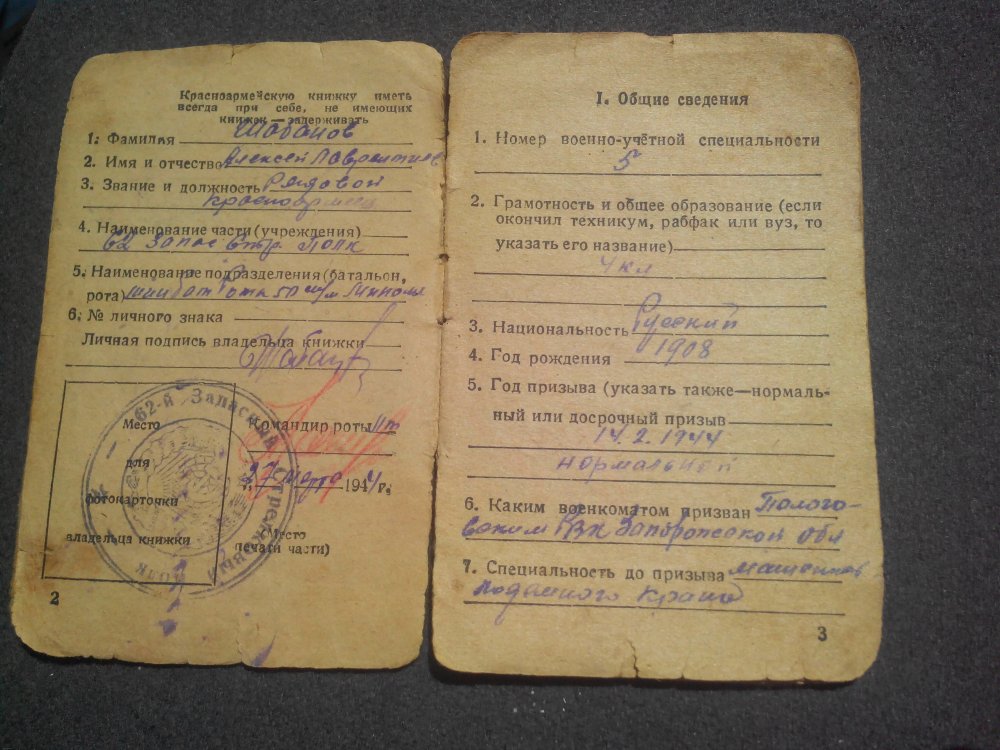 Красноармейскую книжку иметь
всегда при себе, не имеющих
книжек — задерживать
1. Фамилия Шабанов
2. Имя и отчество Алексей
3. Звание и должность Рядовой
4. Наименование части (учреждения)
62 Запас Стр Полк
5. Наименование подразделения (батальон,
рота) рота 50 м/м
6. № личного знака
Личная подпись владельца книжки
62-й Запасный Стрелковый полк
Место
для
фотокарточки
владельца книжки
Командир роты
27 марта 1944 г.
(Место
печати части)
2
I. Общие сведения
1. Номер военно-учётной специальности
5
2. Грамотность и общее образование (если
окончил техникум, рабфак или вуз, то
указать его название)
4 кл
3. Национальность Русский
4. Год рождения 1908
5. Год призыва (указать также—нормаль-
ный или досрочный призыв
14.2.1944
нормальной
6. Каким военкоматом призван Полого-
вским РВК Запорожской обл
7. Специальность до призыва
крана
3